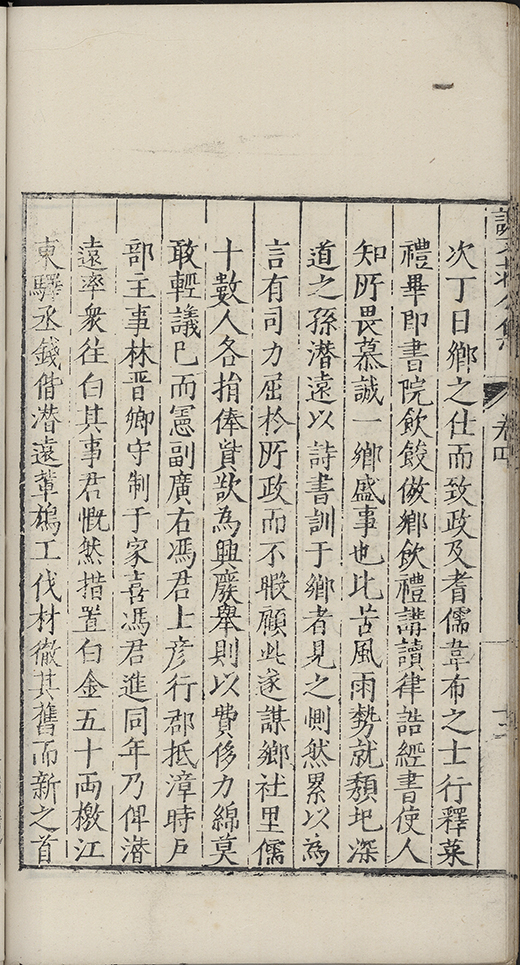 卷四
次丁日鄉之仕而致政及耆儒韋布之士行釋菜
禮畢即書院飲餕倣鄉飲禮講讀律誥經書使人
知所畏慕誠一鄉盛事也比苦風雨勢就頹圯深
道之孫潛遠以詩書訓于鄉者見之惻然累以為
言有司力屈於所政而不暇顧此遂謀鄉社里儒
十數人各捐俸貲欲為興廢舉則以費侈力綿莫
敢輕議已而憲副廣右馮君上彥行郡抵漳時戶
部主事林晉卿守制于家喜馮君進同年乃俾潛
遠率衆往白其事君慨然措置白金五十兩檄江
東驛丞錢偕潛遠葦鳩工伐材徹其舊而新之首